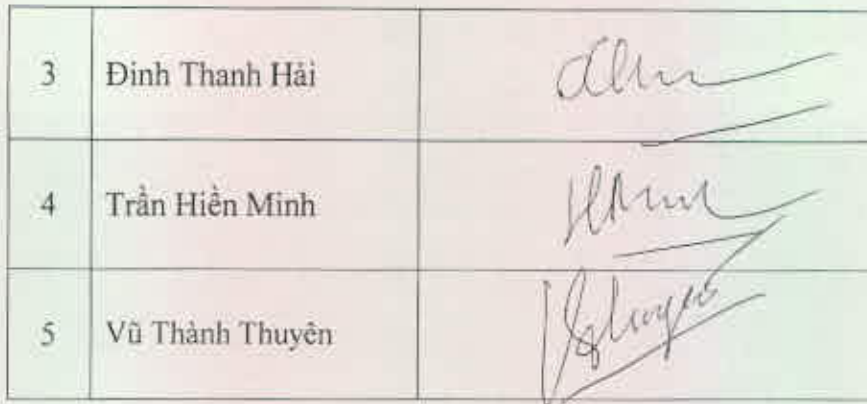 3 Đinh Thanh Hải
4 Trần Hiền Minh
5 Vũ Thành Thuyên